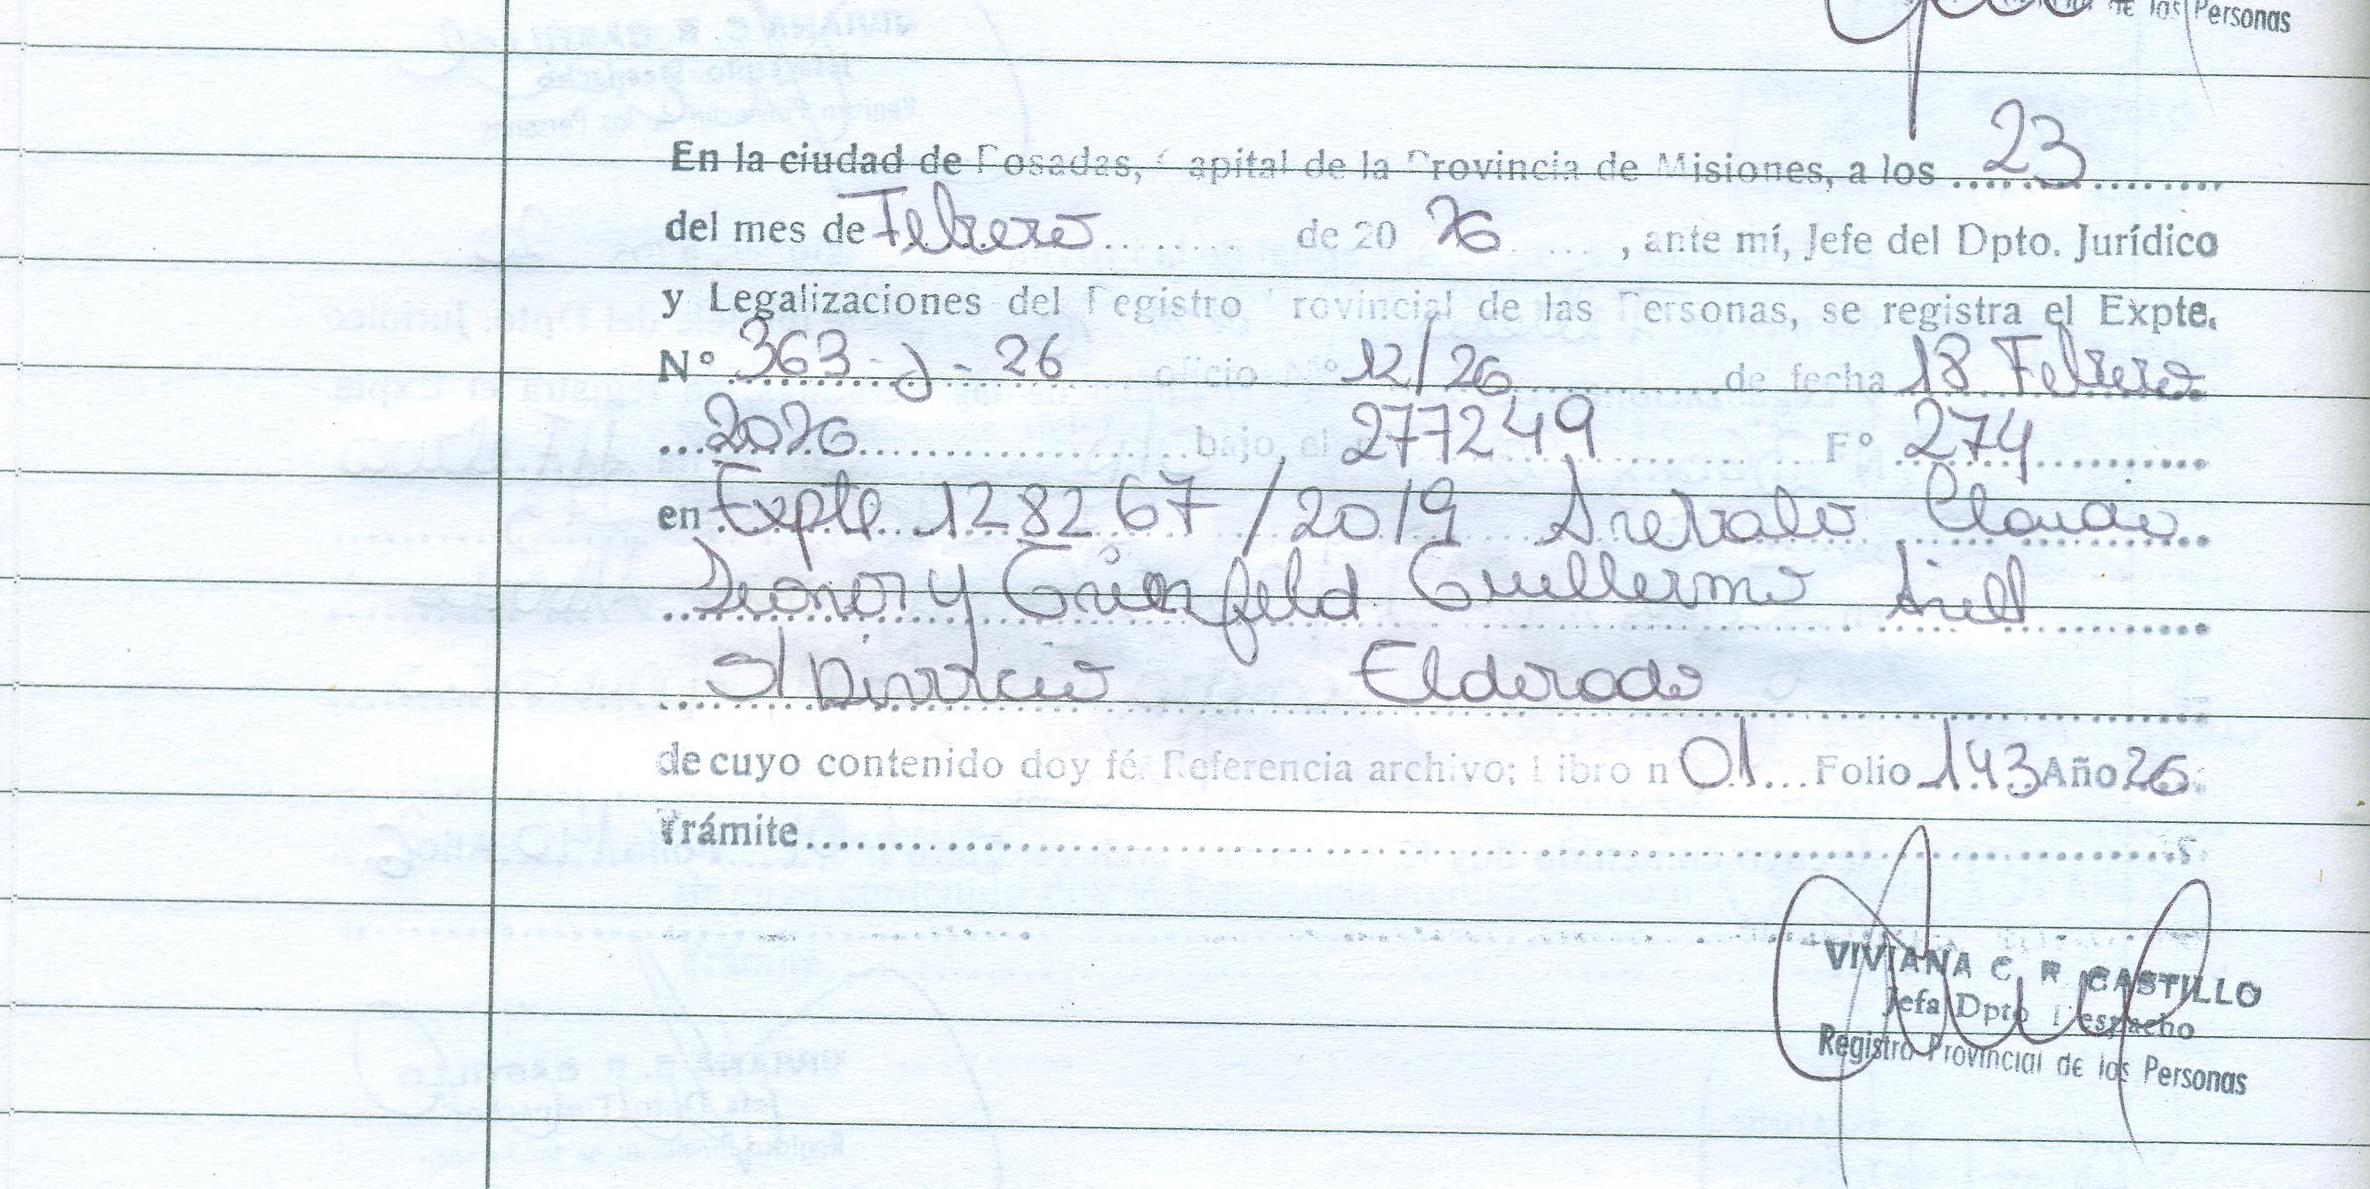 de los Personas
En la ciudad de Posadas, Capital de la Provincia de Misiones, a los 23
del mes de Febrero de 20 26, ante mí, Jefe del Dpto. Jurídico
y Legalizaciones del Registro Provincial de las Personas, se registra el Expte.
Nº 363-J-26 oficio Nº 12/26 de fecha 18 Febrero
2026 bajo el nº 277249 Fº 274
en Expte 128267/2019 Arevalo
y Guillermo Ariel
s/Divorcio Eldorado
de cuyo contenido doy fé. Referencia archivo: Libro nº 01 Folio 143 Año 26
Trámite
VIVIANA C. R. CASTILLO
Jefa Dpto Despacho
Registro Provincial de las Personas